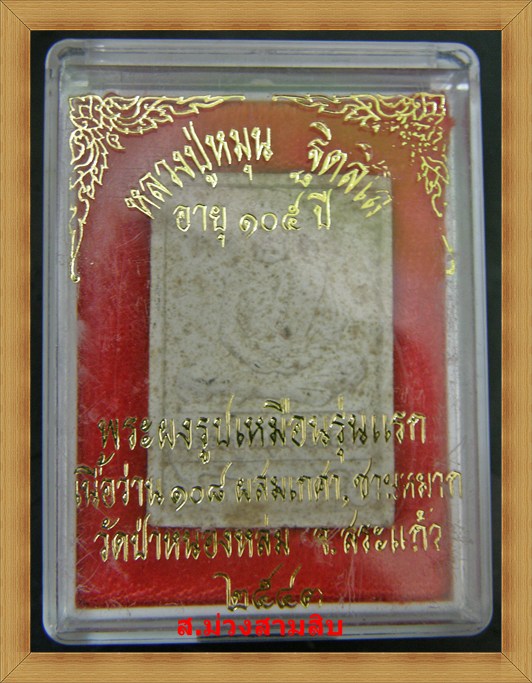 หลวงปู่หมุน ฐิตสีโล
อายุ ๑๐๕ ปี
พระผงรูปเหมือนรุ่นแรก
เนื้อว่าน ๑๐๘ ผสมเกศา, ชานหมาก
วัดป่าหนองหล่ม จ.สระแก้ว
๒๕๔๓
ส.ม่วงสามสิบ